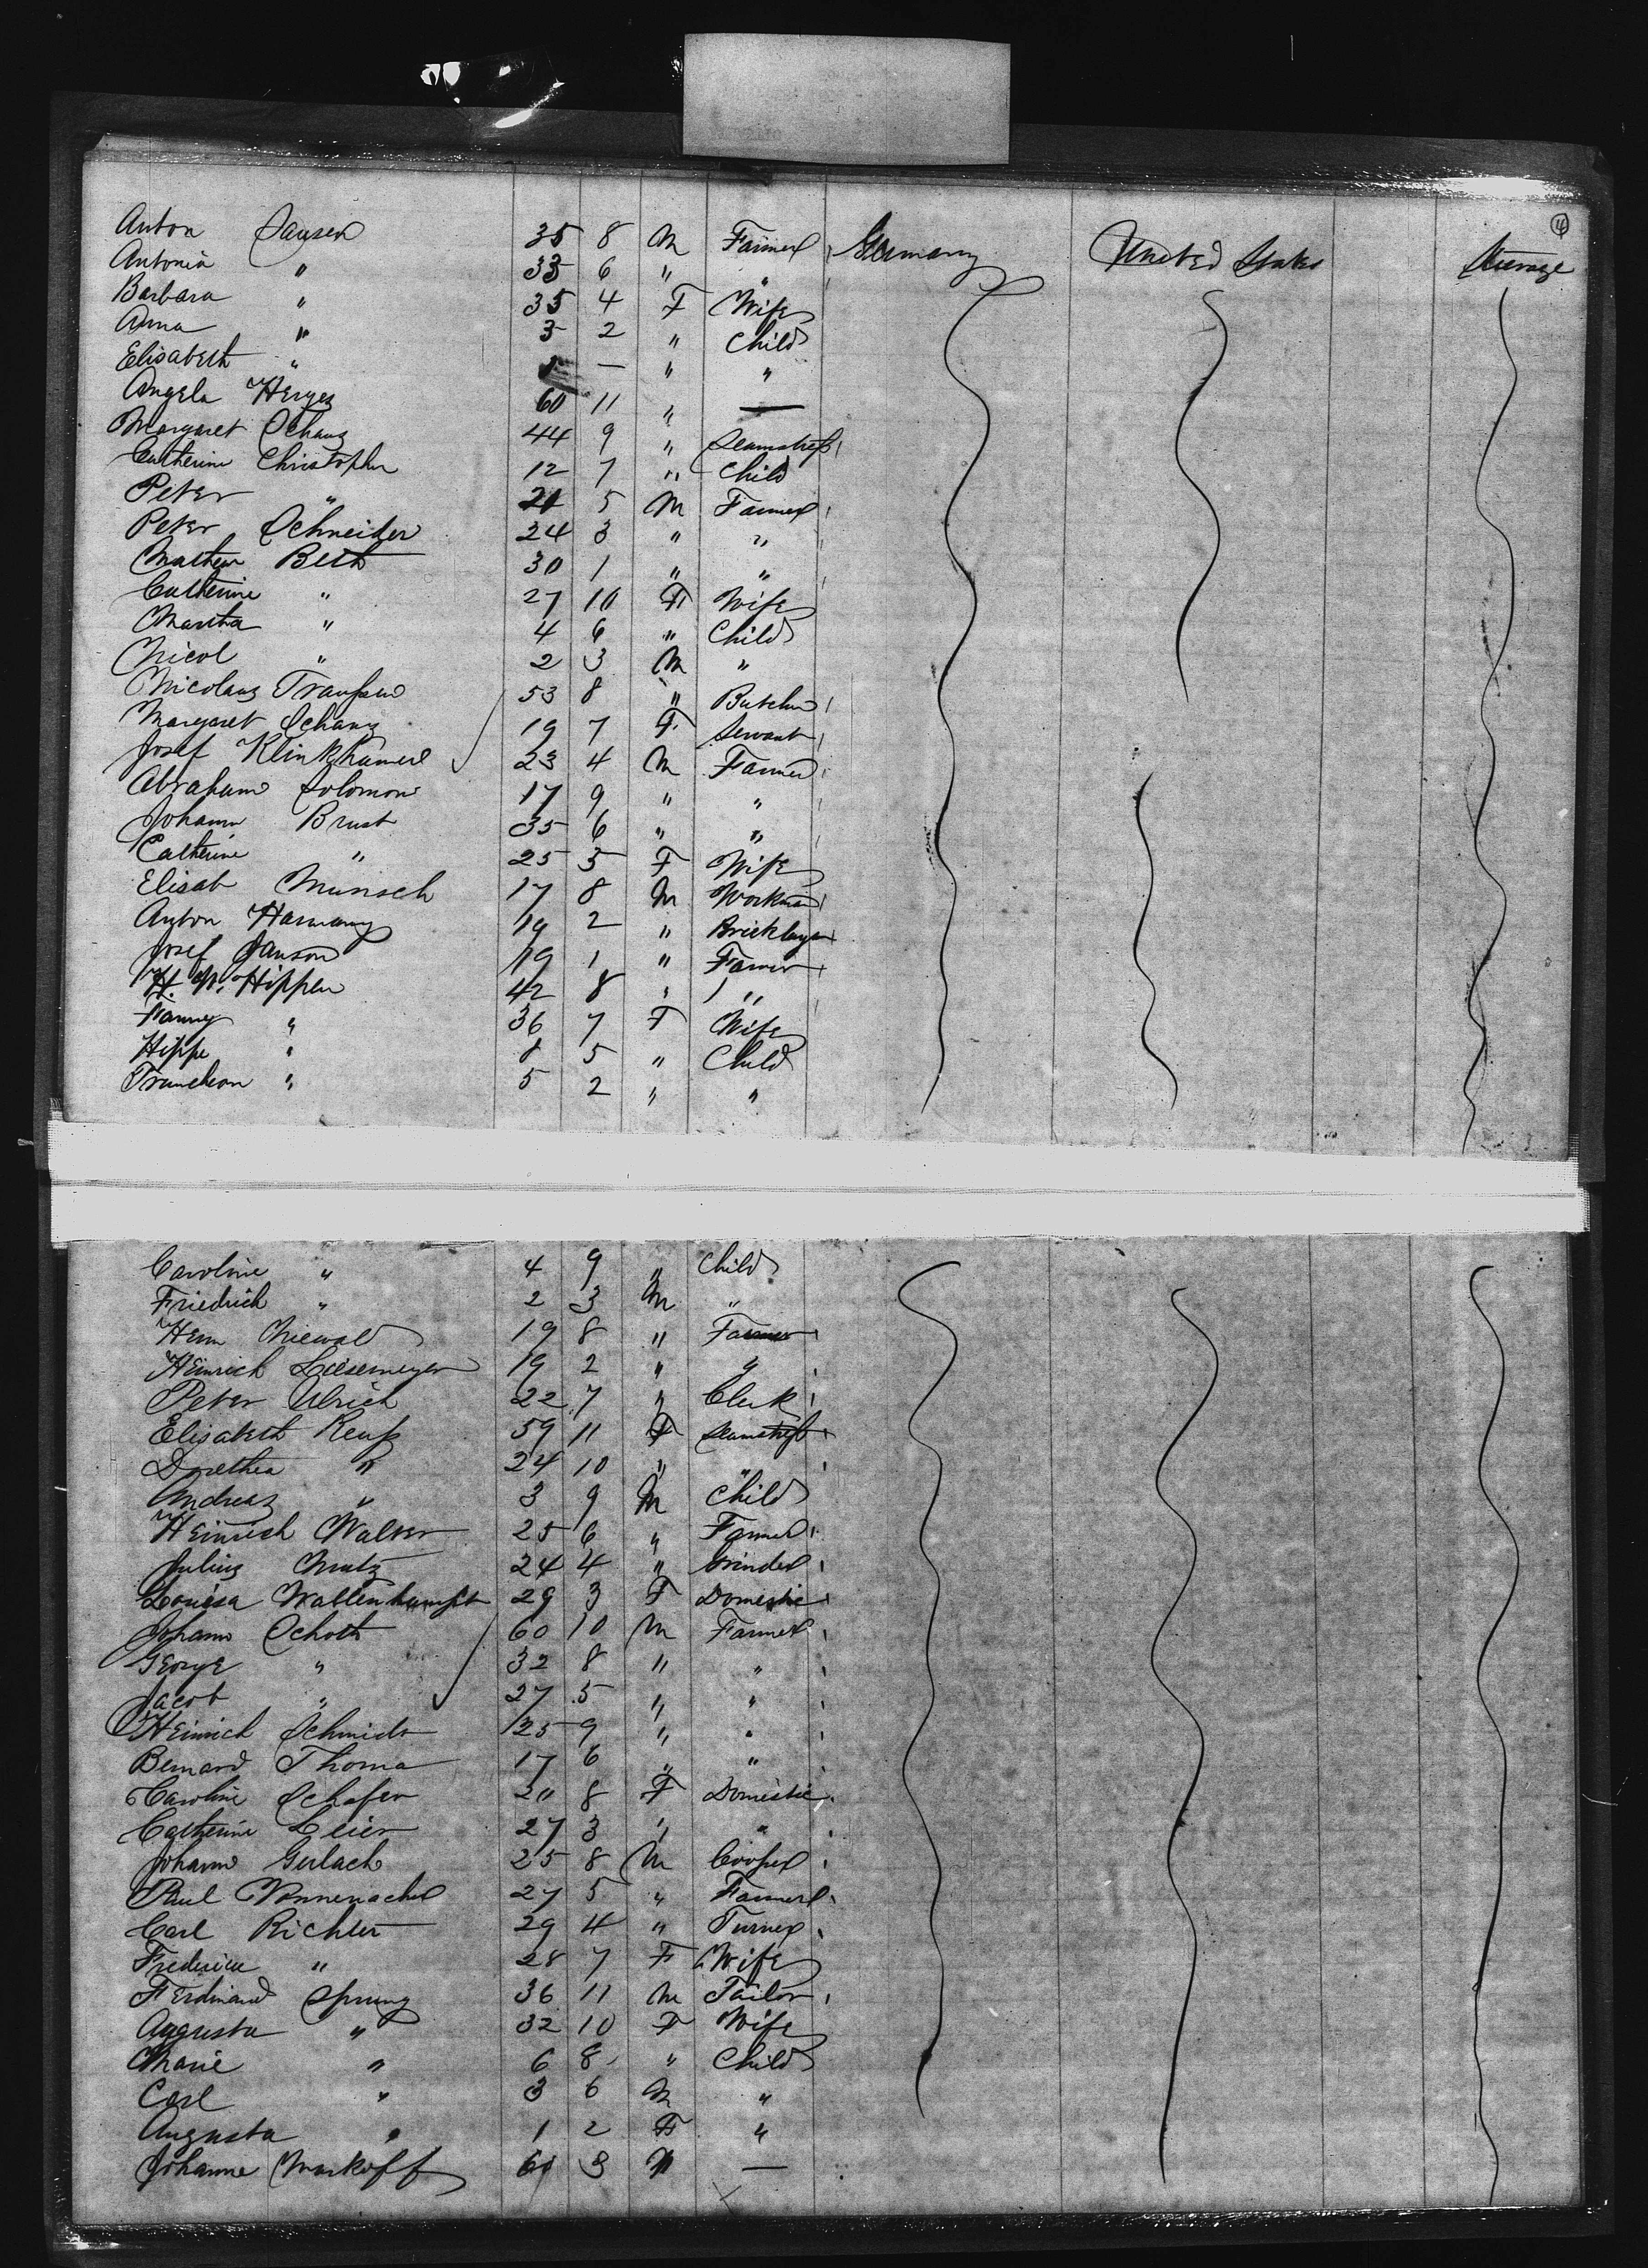 4
Anton Jansen 35 8 M Farmer Germany United States Steerage
Antonia " 33 6 " "
Barbara " 35 4 F Wife
Anna " 3 2 " Child
Elisabeth " — " "
Angela Herges 60 11 " —
Margaret Schanz 44 9 " Seamstress
Catherine Christopher 12 7 " Child
Peter " 21 5 M Farmer
Peter Schneider 24 3 " "
Mathew Beth 30 1 " "
Catherine " 27 10 F Wife
Martha " 4 6 " Child
Nicol " 2 3 M "
Nicolaus 53 8 " Butcher
Margaret Schanz 19 7 F Servant
Josef Klinkhamer 23 4 M Farmer
Abraham Solomon 17 9 " "
Johann Brust 35 6 " "
Catherine " 25 5 F Wife
Elisab Munsch 17 8 M Workman
Anton Harmany 19 2 " Bricklayer
Josef Janson 19 1 " Farmer
H. W. Hippen 42 8 " "
Fanny " 36 7 F Wife
Hippe " 8 5 " Child
" 5 2 " "
Caroline " 4 9 " Child
Friedrich " 2 3 M "
Herm Niewald 19 8 " Farmer
Heinrich Liesemeyer 19 2 " "
Peter Ulrich 22 7 " Clerk
Elisabeth Reuss 59 11 F Seamstress
Dorethea " 24 10 " "
Andreas " 3 9 M Child
Heinrich Walter 25 6 " Farmer
Julius Mutz 24 4 " Grinder
Louisa 29 3 F Domestic
Johann Schoth 60 10 M Farmer
George " 32 8 " "
Jacob " 27 5 " "
Heinrich Schmidt 25 9 " "
Bernard Thoma 17 6 " "
Caroline Schafer 20 8 F Domestic
Catherine Leier 27 3 " "
Johann Gerlach 25 8 M Cooper
Paul Nonnenacher 27 5 " Farmer
Carl Richter 29 4 " Turner
Frederice " 28 7 F Wife
Ferdinand Sprung 36 11 M Tailor
Augusta " 32 10 F Wife
Marie " 6 8 " Child
Carl " 3 6 M "
Augusta " 1 2 F "
Johanne Markoff 61 3 " —